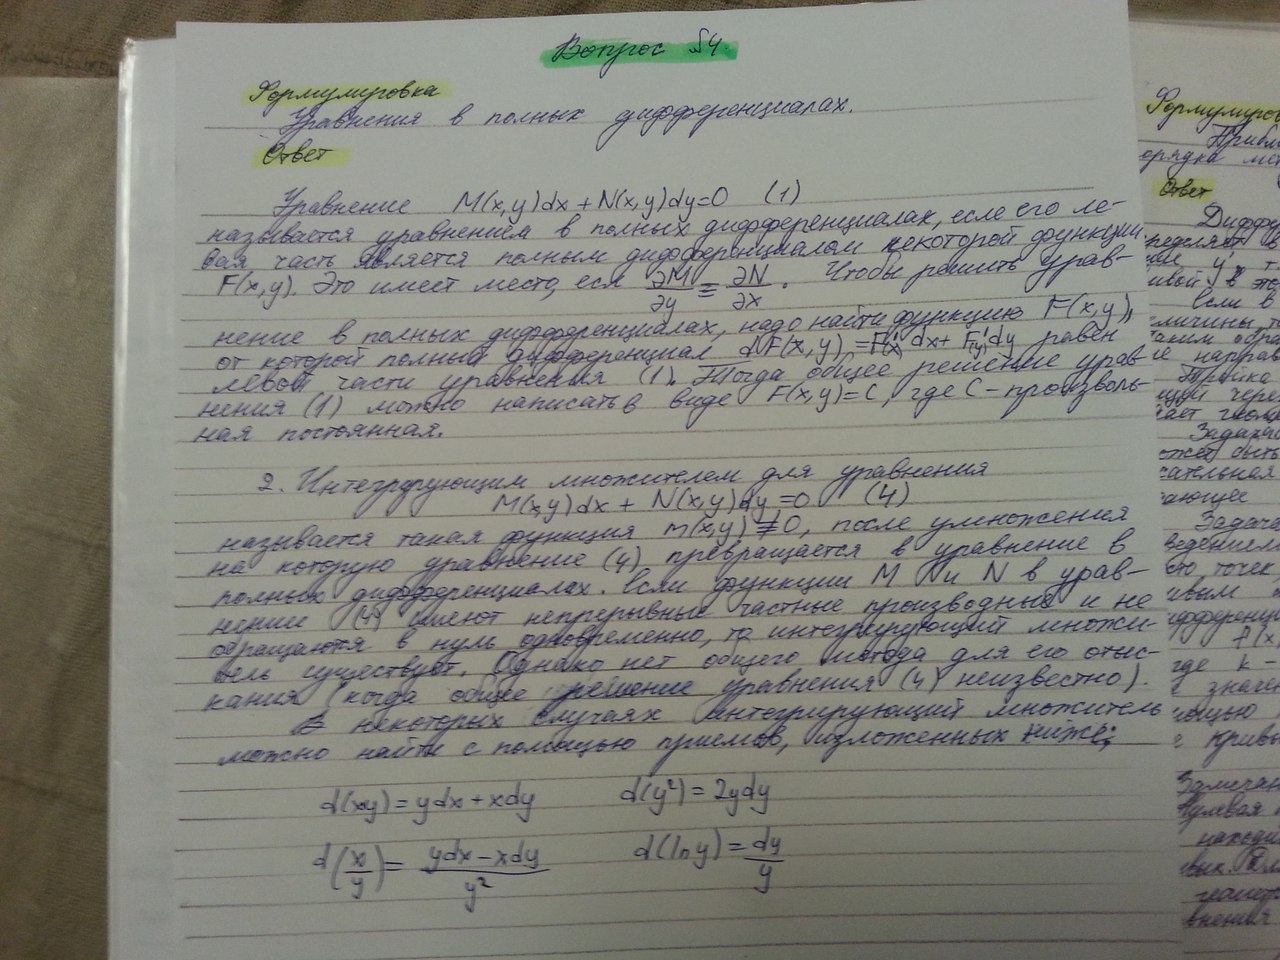 Вопрос №4
Формулировка
Уравнения в полных дифференциалах.
Ответ
Уравнение M(x,y)dx + N(x,y)dy=0 (1)
называется уравнением в полных дифференциалах, если его ле-
вая часть является полным дифференциалом некоторой функции
F(x,y). Это имеет место, если ∂M/∂y ≡ ∂N/∂x. Чтобы решить урав-
нение в полных дифференциалах, надо найти функцию F(x,y),
от которой полный дифференциал dF(x,y)=F'(x)dx+F'(y)dy равен
левой части уравнения (1). Тогда общее решение урав-
нения (1) можно написать в виде F(x,y)=C, где C-произволь-
ная постоянная.
2. Интегрирующим множителем для уравнения
M(x,y)dx + N(x,y)dy=0 (4)
называется такая функция m(x,y)≠0, после умножения
на которую уравнение (4) превращается в уравнение в
полных дифференциалах. Если функции M и N в урав-
нении (4) имеют непрерывные частные производные и не
обращаются в нуль одновременно, то интегрирующий множи-
тель существует. Однако нет общего метода для его отыс-
кания (когда общее решение уравнения (4) неизвестно).
В некоторых случаях интегрирующий множитель
можно найти с помощью приемов, изложенных ниже;
d(xy)=ydx+xdy d(y²)=2ydy
d(x/y)= (ydx-xdy)/y² d(ln y)=dy/y
Формулиров
Прибл
орядка
Ответ
Дифф
Если в
Тройка
Задача
Задача
где k -
Замечан
нулевая
находи
внения